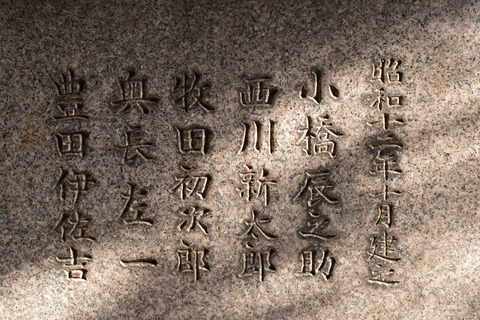 昭和十二年十月建之
小橋辰之助
西川新太郎
牧田初次郎
奥長左一
豊田伊佐吉